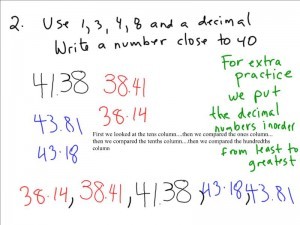 2. Use 1, 3, 4, 8 and a decimal
Write a number close to 40
41.38
38.41
43.81
38.14
43.18
For extra
practice
we put
the decimal
numbers in order
from least to
greatest
First we looked at the tens column....then we compared the ones column....
then we compared the tenths column....then we compared the hundredths
column
38.14, 38.41, 41.38, 43.18, 43.81